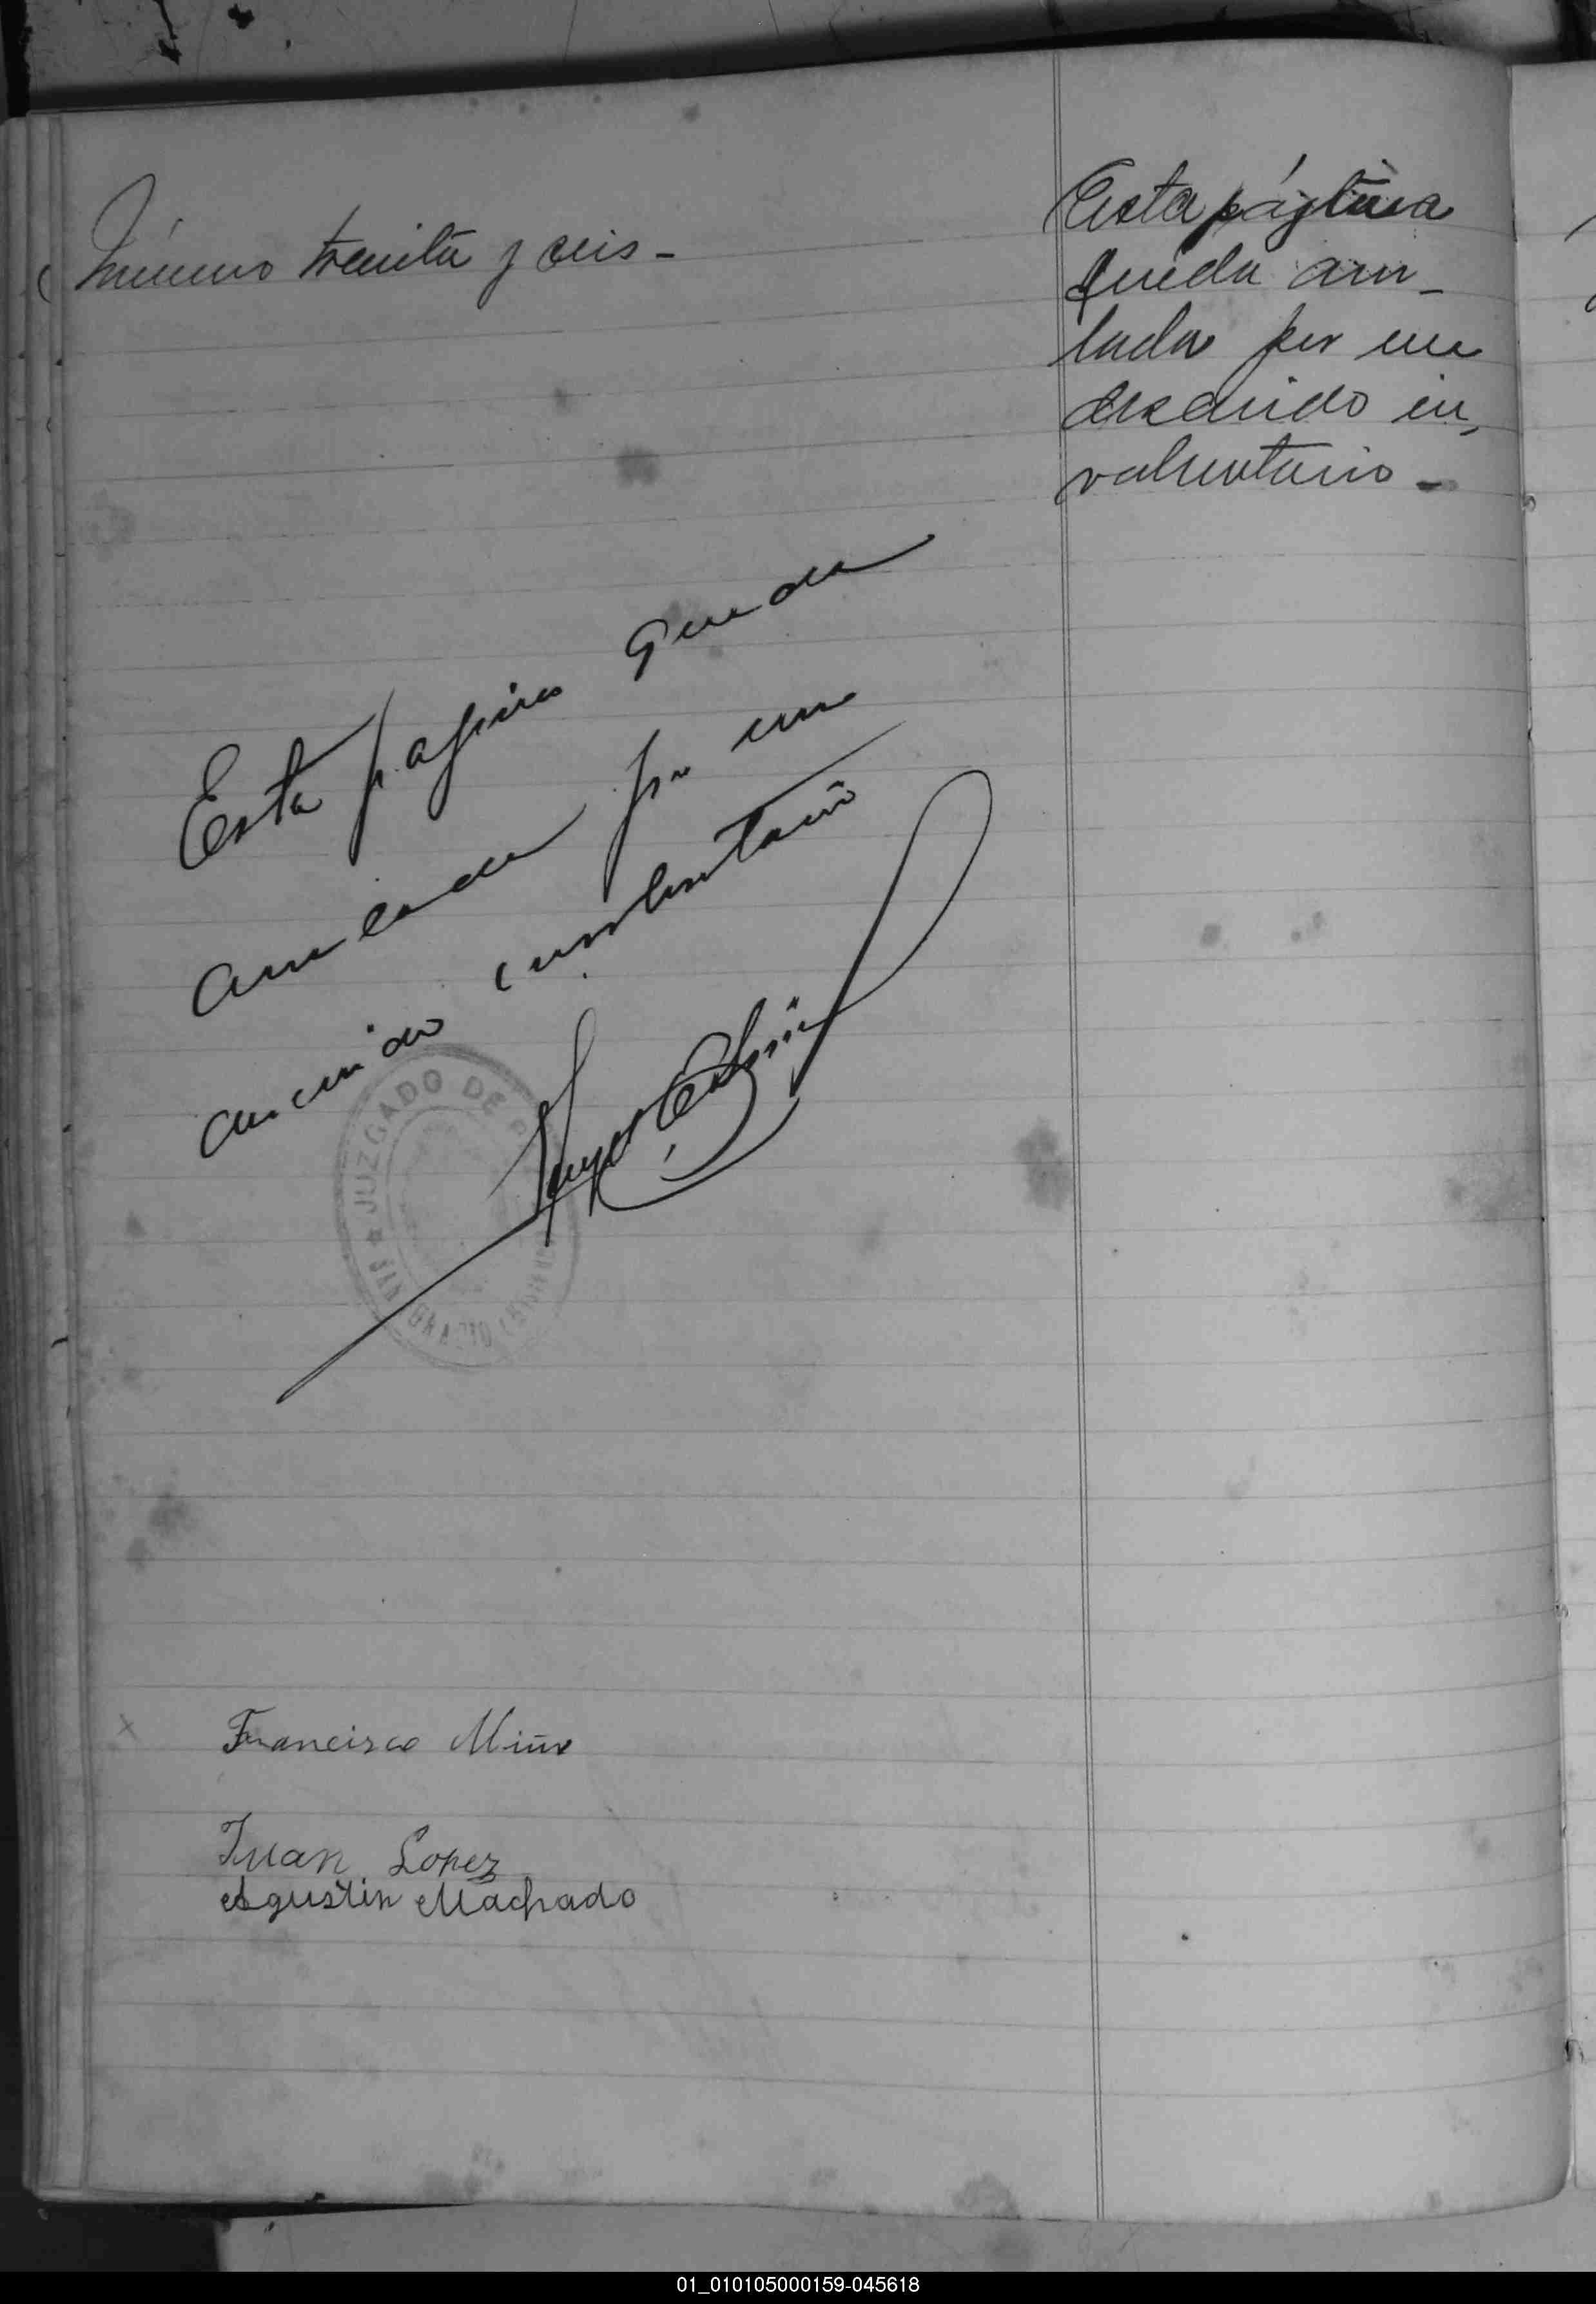 Número treinta y seis -
Esta página
queda anu-
lada por un
descuido in-
voluntario -
Esta pagina queda
anulada por un
descuido involuntario
JUZGADO DE P
SAN IGNACIO
Francisco Miño
Juan Lopez
Agustin Machado
01_010105000159-045618